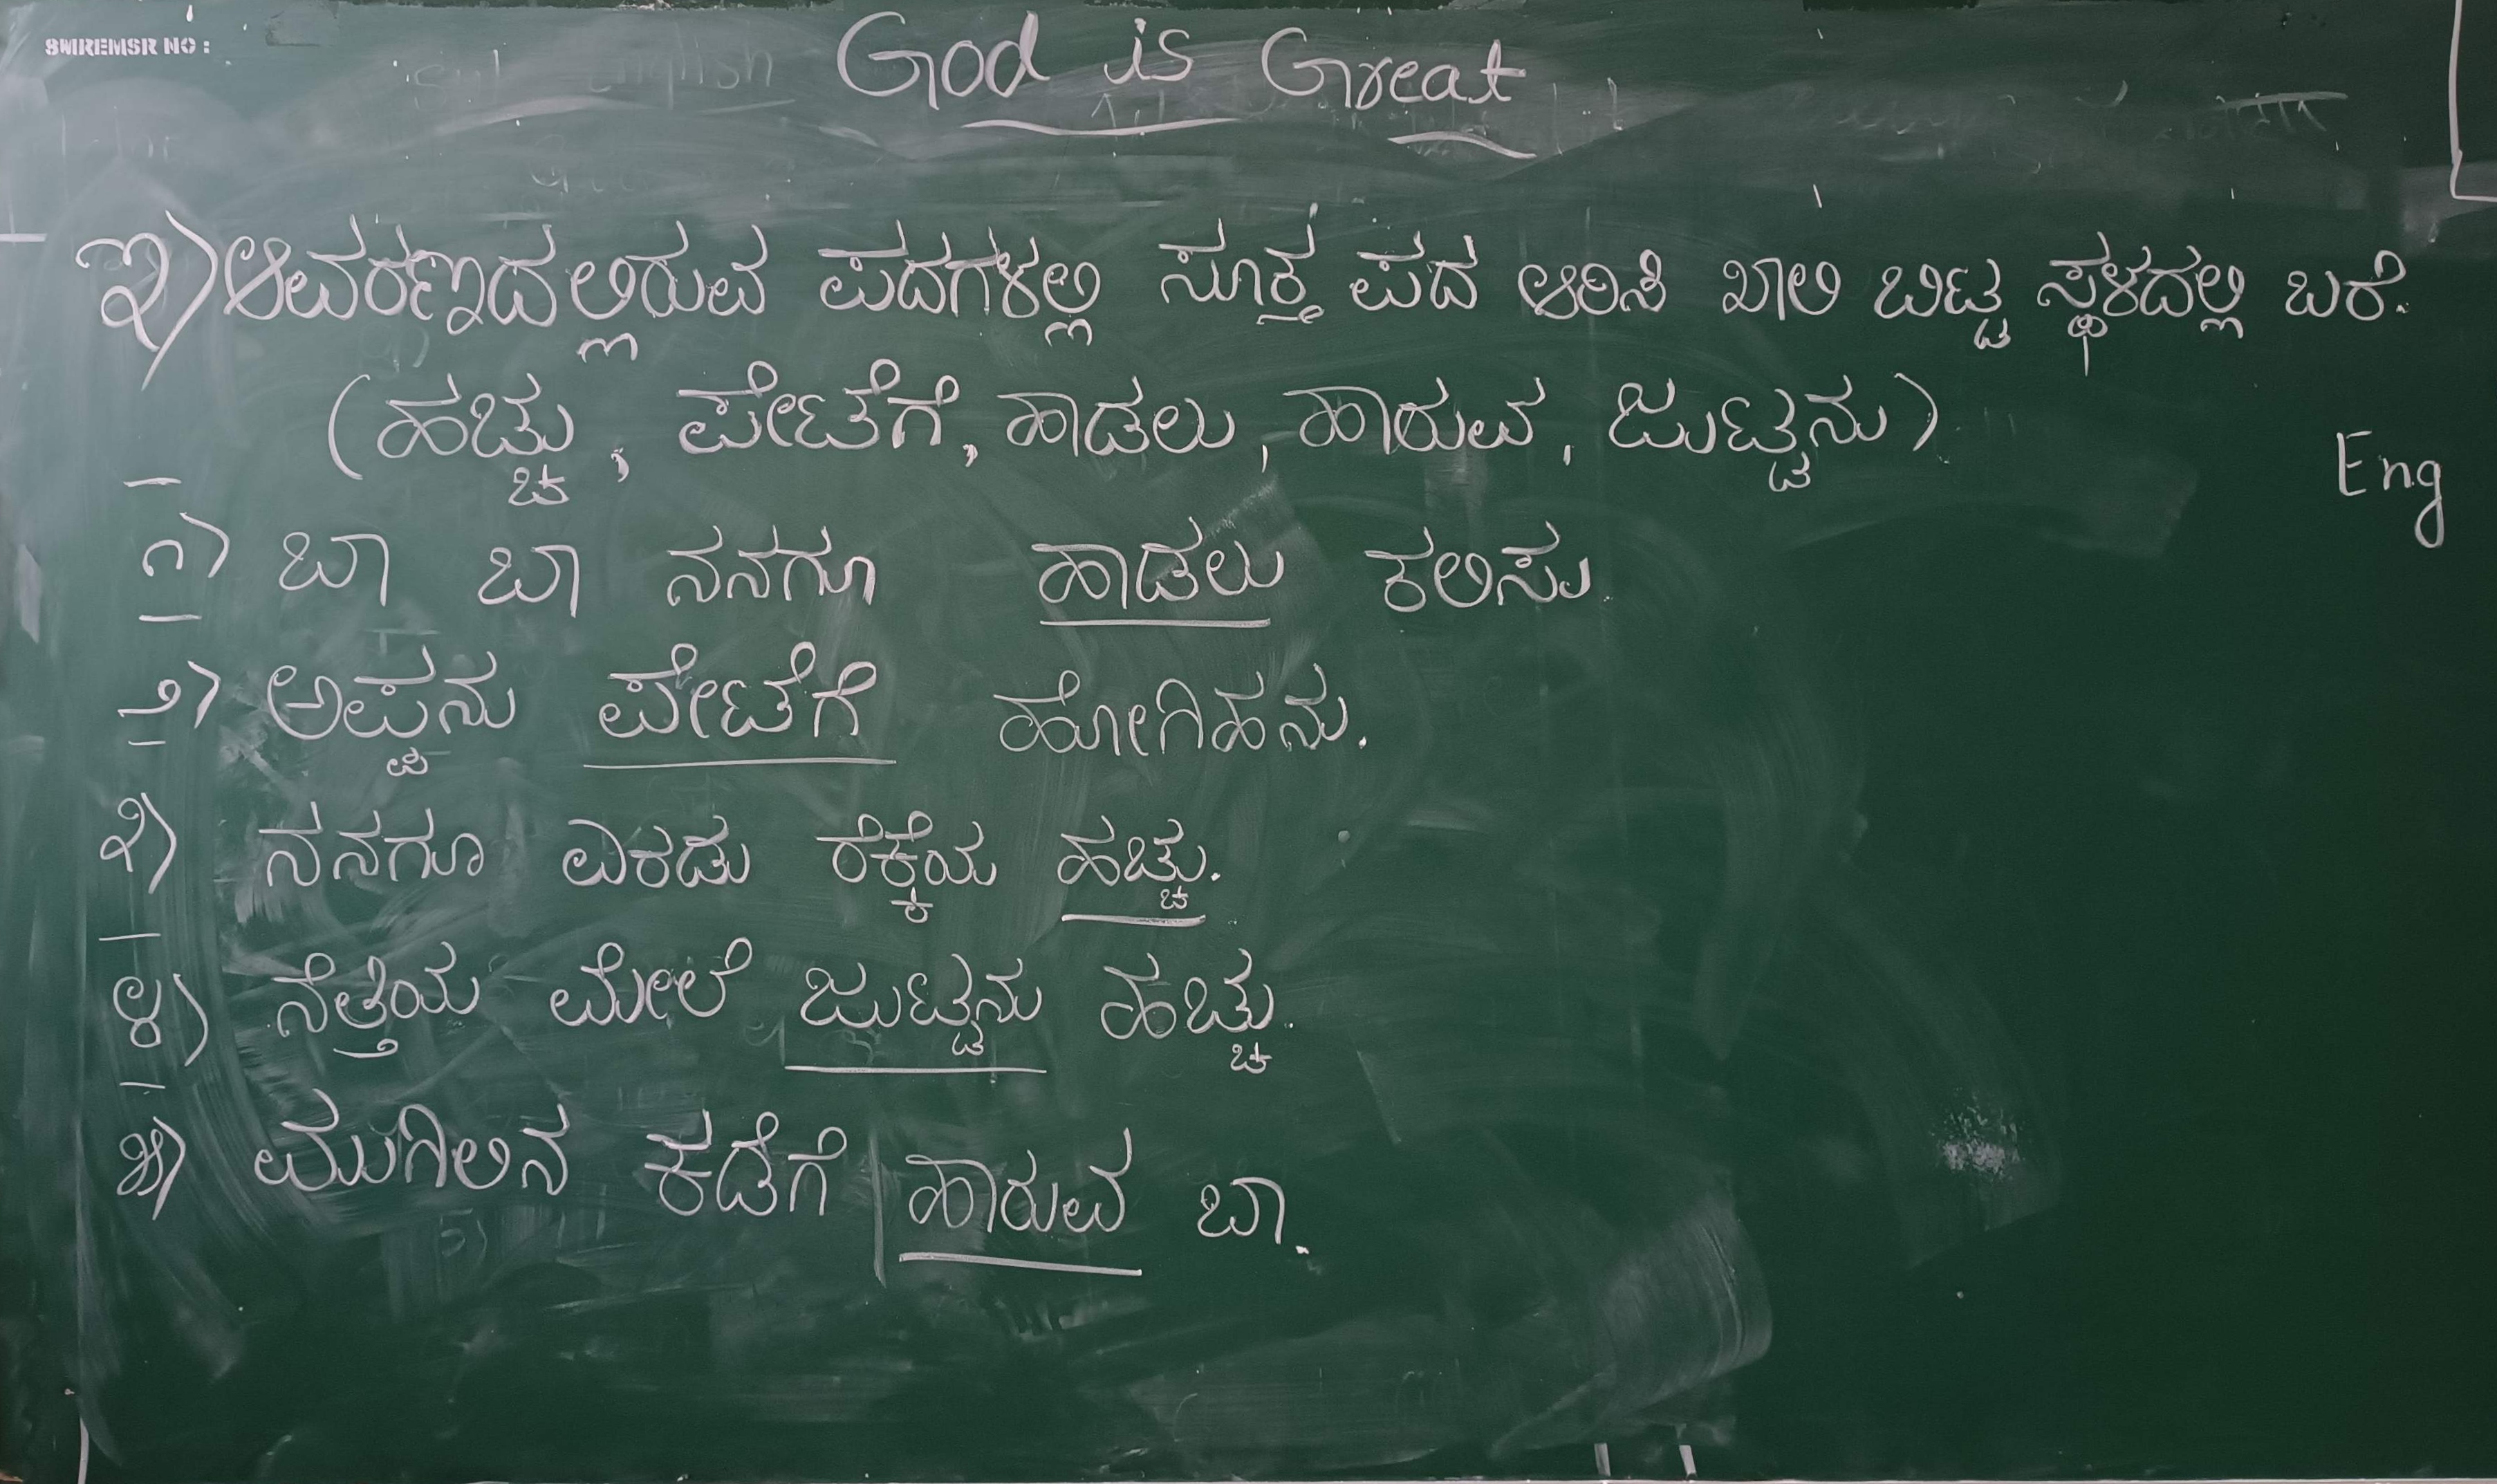 SMREMSR NO :
God is Great
ಇ) ಆವರಣದಲ್ಲಿರುವ ಪದಗಳಲ್ಲಿ ಸೂಕ್ತ ಪದ ಆರಿಸಿ ಖಾಲಿ ಬಿಟ್ಟ ಸ್ಥಳದಲ್ಲಿ ಬರೆ.
(ಹಚ್ಚು, ಪೇಟೆಗೆ, ಹಾಡಲು, ಹಾರುವ, ಜುಟ್ಟನು)
Eng
೧) ಬಾ ಬಾ ನನಗೂ ಹಾಡಲು ಕಲಿಸು
೨) ಅಪ್ಪನು ಪೇಟೆಗೆ ಹೋಗಿಹನು.
೩) ನನಗೂ ಎರಡು ರೆಕ್ಕೆಯ ಹಚ್ಚು.
೪) ನೆತ್ತಿಯ ಮೇಲೆ ಜುಟ್ಟನು ಹಚ್ಚು.
೫) ಮುಗಿಲಿನ ಕಡೆಗೆ ಹಾರುವ ಬಾ.